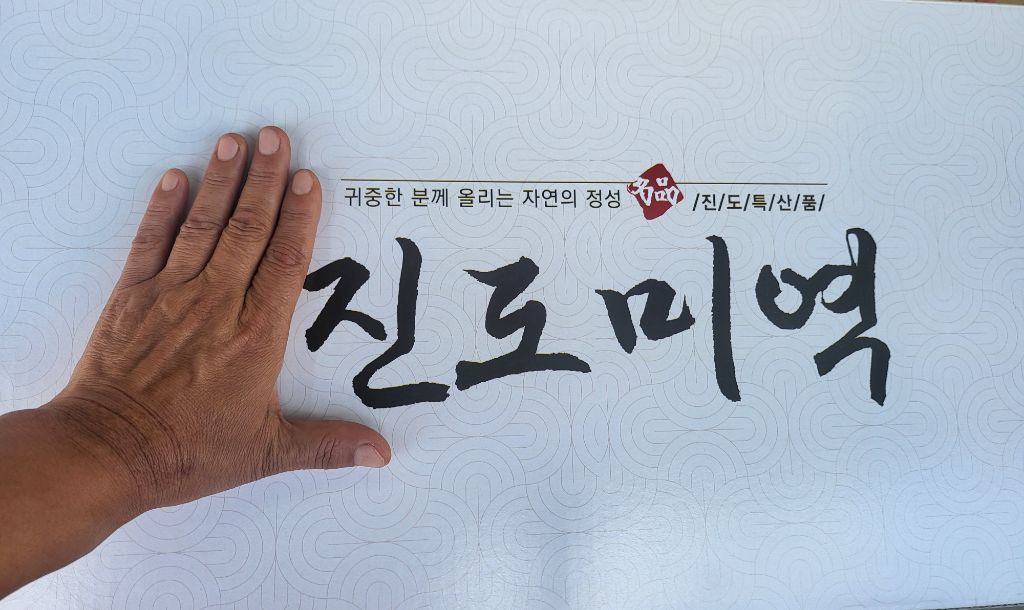 귀중한 분께 올리는 자연의 정성 名品 /진/도/특/산/품/
진도미역